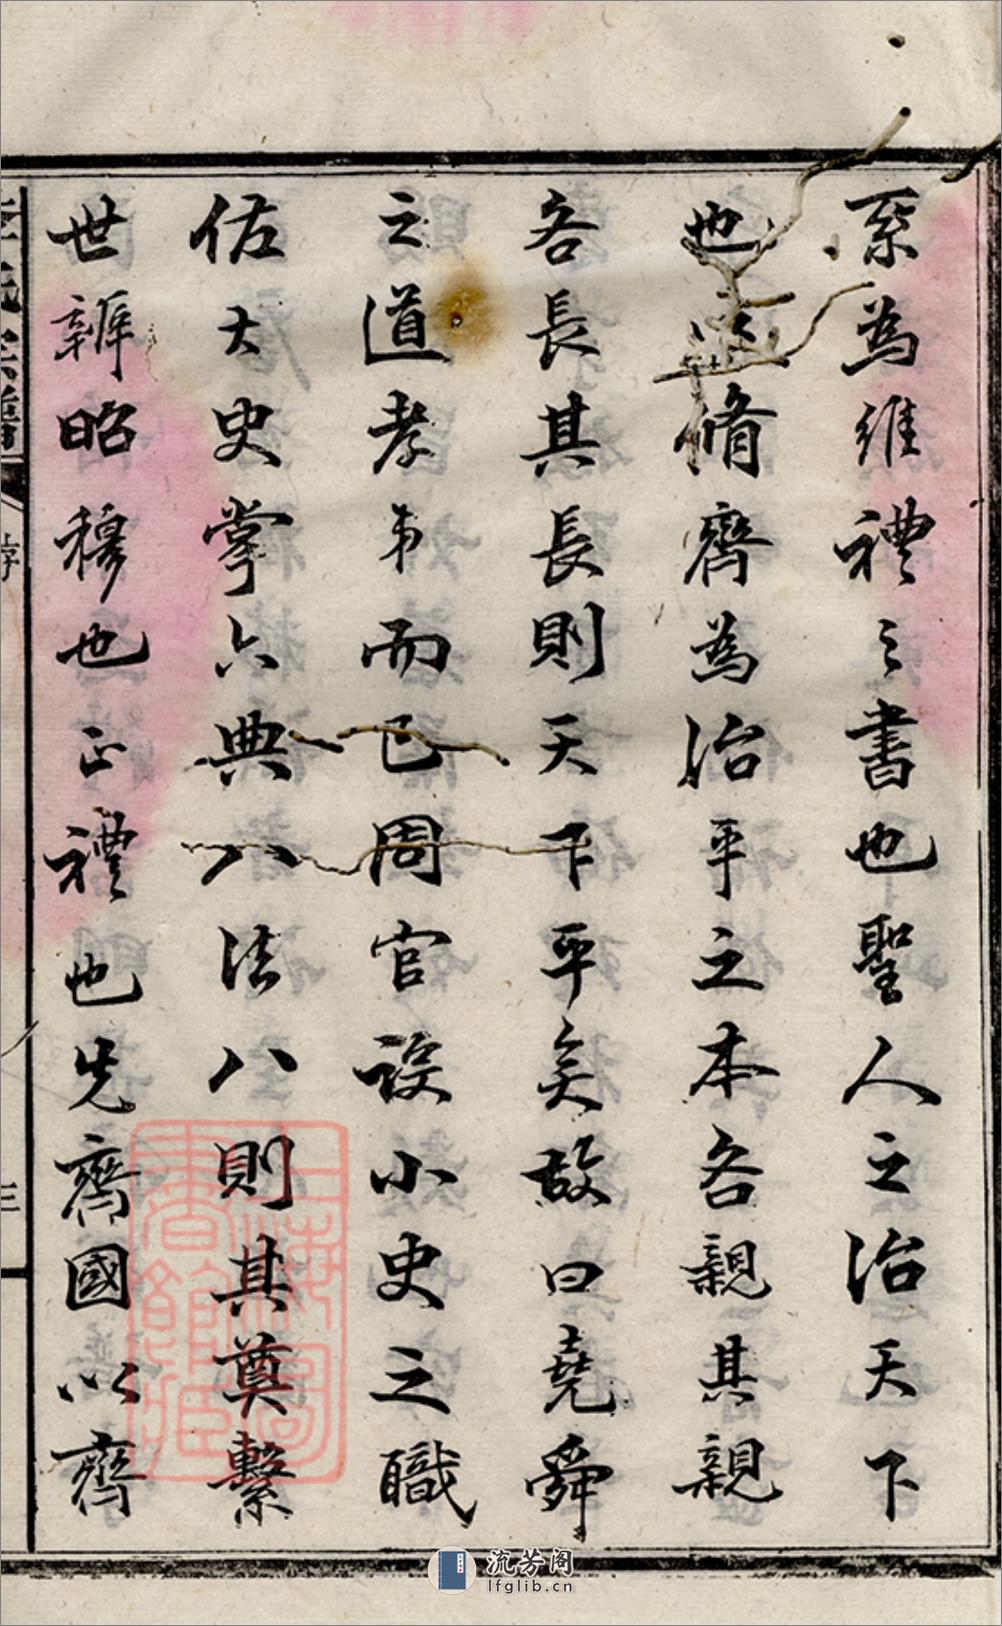 系為維禮之書也聖人之治天下
也道脩齊為治平之本各親其親
各長其長則天下平矣故曰堯舜
之道孝弟而已周官設小史之職
佐大史掌六典八法八則其奠繫
世辨昭穆也正禮也先齊國以齊
序
三
上海圖書館藏
流芳阁
lfglib.cn